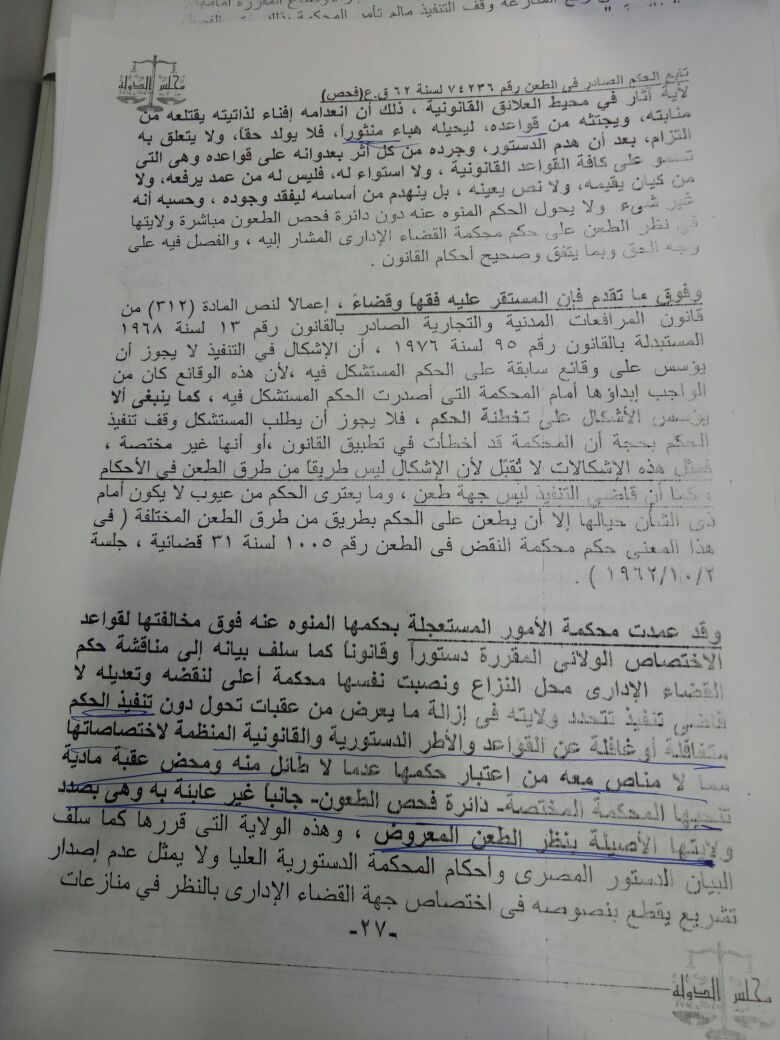 وقف التنفيذ مالم تأمر المحكمة بذلك
مجلس الدولة
تابع الحكم الصادر فى الطعن رقم ٧٤٢٣٦ لسنة ٦٢ ق.ع(فحص)
لأية آثار في محيط العلائق القانونية ، ذلك أن انعدامه إفناء لذاتيته يقتلعه من
منابته، ويجتثه من قواعده، ليحيله هباء منثوراً، فلا يولد حقا، ولا يتعلق به
التزام، بعد أن هدم الدستور، وجرده من كل أثر بعدوانه على قواعده وهى التى
تسمو على كافة القواعد القانونية ، ولا استواء له، فليس له من عمد يرفعه، ولا
من كيان يقيمه، ولا نص يعينه ، بل ينهدم من أساسه ليفقد وجوده ، وحسبه أنه
غير شىء ولا يحول الحكم المنوه عنه دون دائرة فحص الطعون مباشرة ولايتها
في نظر الطعن على حكم محكمة القضاء الإدارى المشار إليه ، والفصل فيه على
وجه الحق وبما يتفق وصحيح أحكام القانون .
وفوق ما تقدم فإن المستقر عليه فقهاً وقضاءً ، إعمالا لنص المادة (٣١٢) من
قانون المرافعات المدنية والتجارية الصادر بالقانون رقم ١٣ لسنة ١٩٦٨
المستبدلة بالقانون رقم ٩٥ لسنة ١٩٧٦ ، أن الإشكال في التنفيذ لا يجوز أن
يؤسس على وقائع سابقة على الحكم المستشكل فيه ،لأن هذه الوقائع كان من
الواجب إبداؤها أمام المحكمة التى أصدرت الحكم المستشكل فيه ، كما ينبغى ألا
يؤسس الأشكال على تخطئة الحكم ، فلا يجوز أن يطلب المستشكل وقف تنفيذ
الحكم بحجة أن المحكمة قد أخطأت في تطبيق القانون ،أو أنها غير مختصة ،
فمثل هذه الإشكالات لا تُقبَل لأن الإشكال ليس طريقا من طرق الطعن في الأحكام
، كما أن قاضي التنفيذ ليس جهة طعن ، وما يعترى الحكم من عيوب لا يكون أمام
ذى الشأن حيالها إلا أن يطعن على الحكم بطريق من طرق الطعن المختلفة ( فى
هذا المعنى حكم محكمة النقض فى الطعن رقم ١٠٠٥ لسنة ٣١ قضائية ، جلسة
١٩٦٢/١٠/٢ ) .
وقد عمدت محكمة الأمور المستعجلة بحكمها المنوه عنه فوق مخالفتها لقواعد
الاختصاص الولائى المقررة دستوراً وقانوناً كما سلف بيانه إلى مناقشة حكم
القضاء الإدارى محل النزاع ونصبت نفسها محكمة أعلى لنقضه وتعديله لا
قاضى تنفيذ تتحدد ولايته فى إزالة ما يعرض من عقبات تحول دون تنفيذ الحكم
متغافلة أو غافلة عن القواعد والأطر الدستورية والقانونية المنظمة لاختصاصاتها
مما لا مناص معه من اعتبار حكمها عدما لا طائل منه ومحض عقبة مادية
تنحيها المحكمة المختصة- دائرة فحص الطعون- جانباً غير عابئة به وهى بصدد
ولايتها الأصيلة بنظر الطعن المعروض ، وهذه الولاية التى قررها كما سلف
البيان الدستور المصرى وأحكام المحكمة الدستورية العليا ولا يمثل عدم إصدار
تشريع يقطع بنصوصه فى اختصاص جهة القضاء الإدارى بالنظر في منازعات
-٢٧-
مجلس الدولة